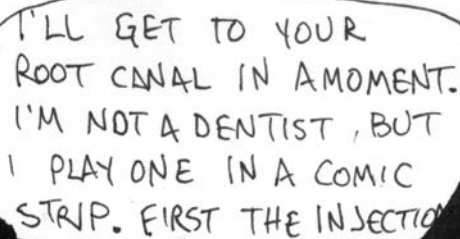 I'LL GET TO YOUR
ROOT CANAL IN A MOMENT.
I'M NOT A DENTIST, BUT
I PLAY ONE IN A COMIC
STRIP. FIRST THE INJECTION